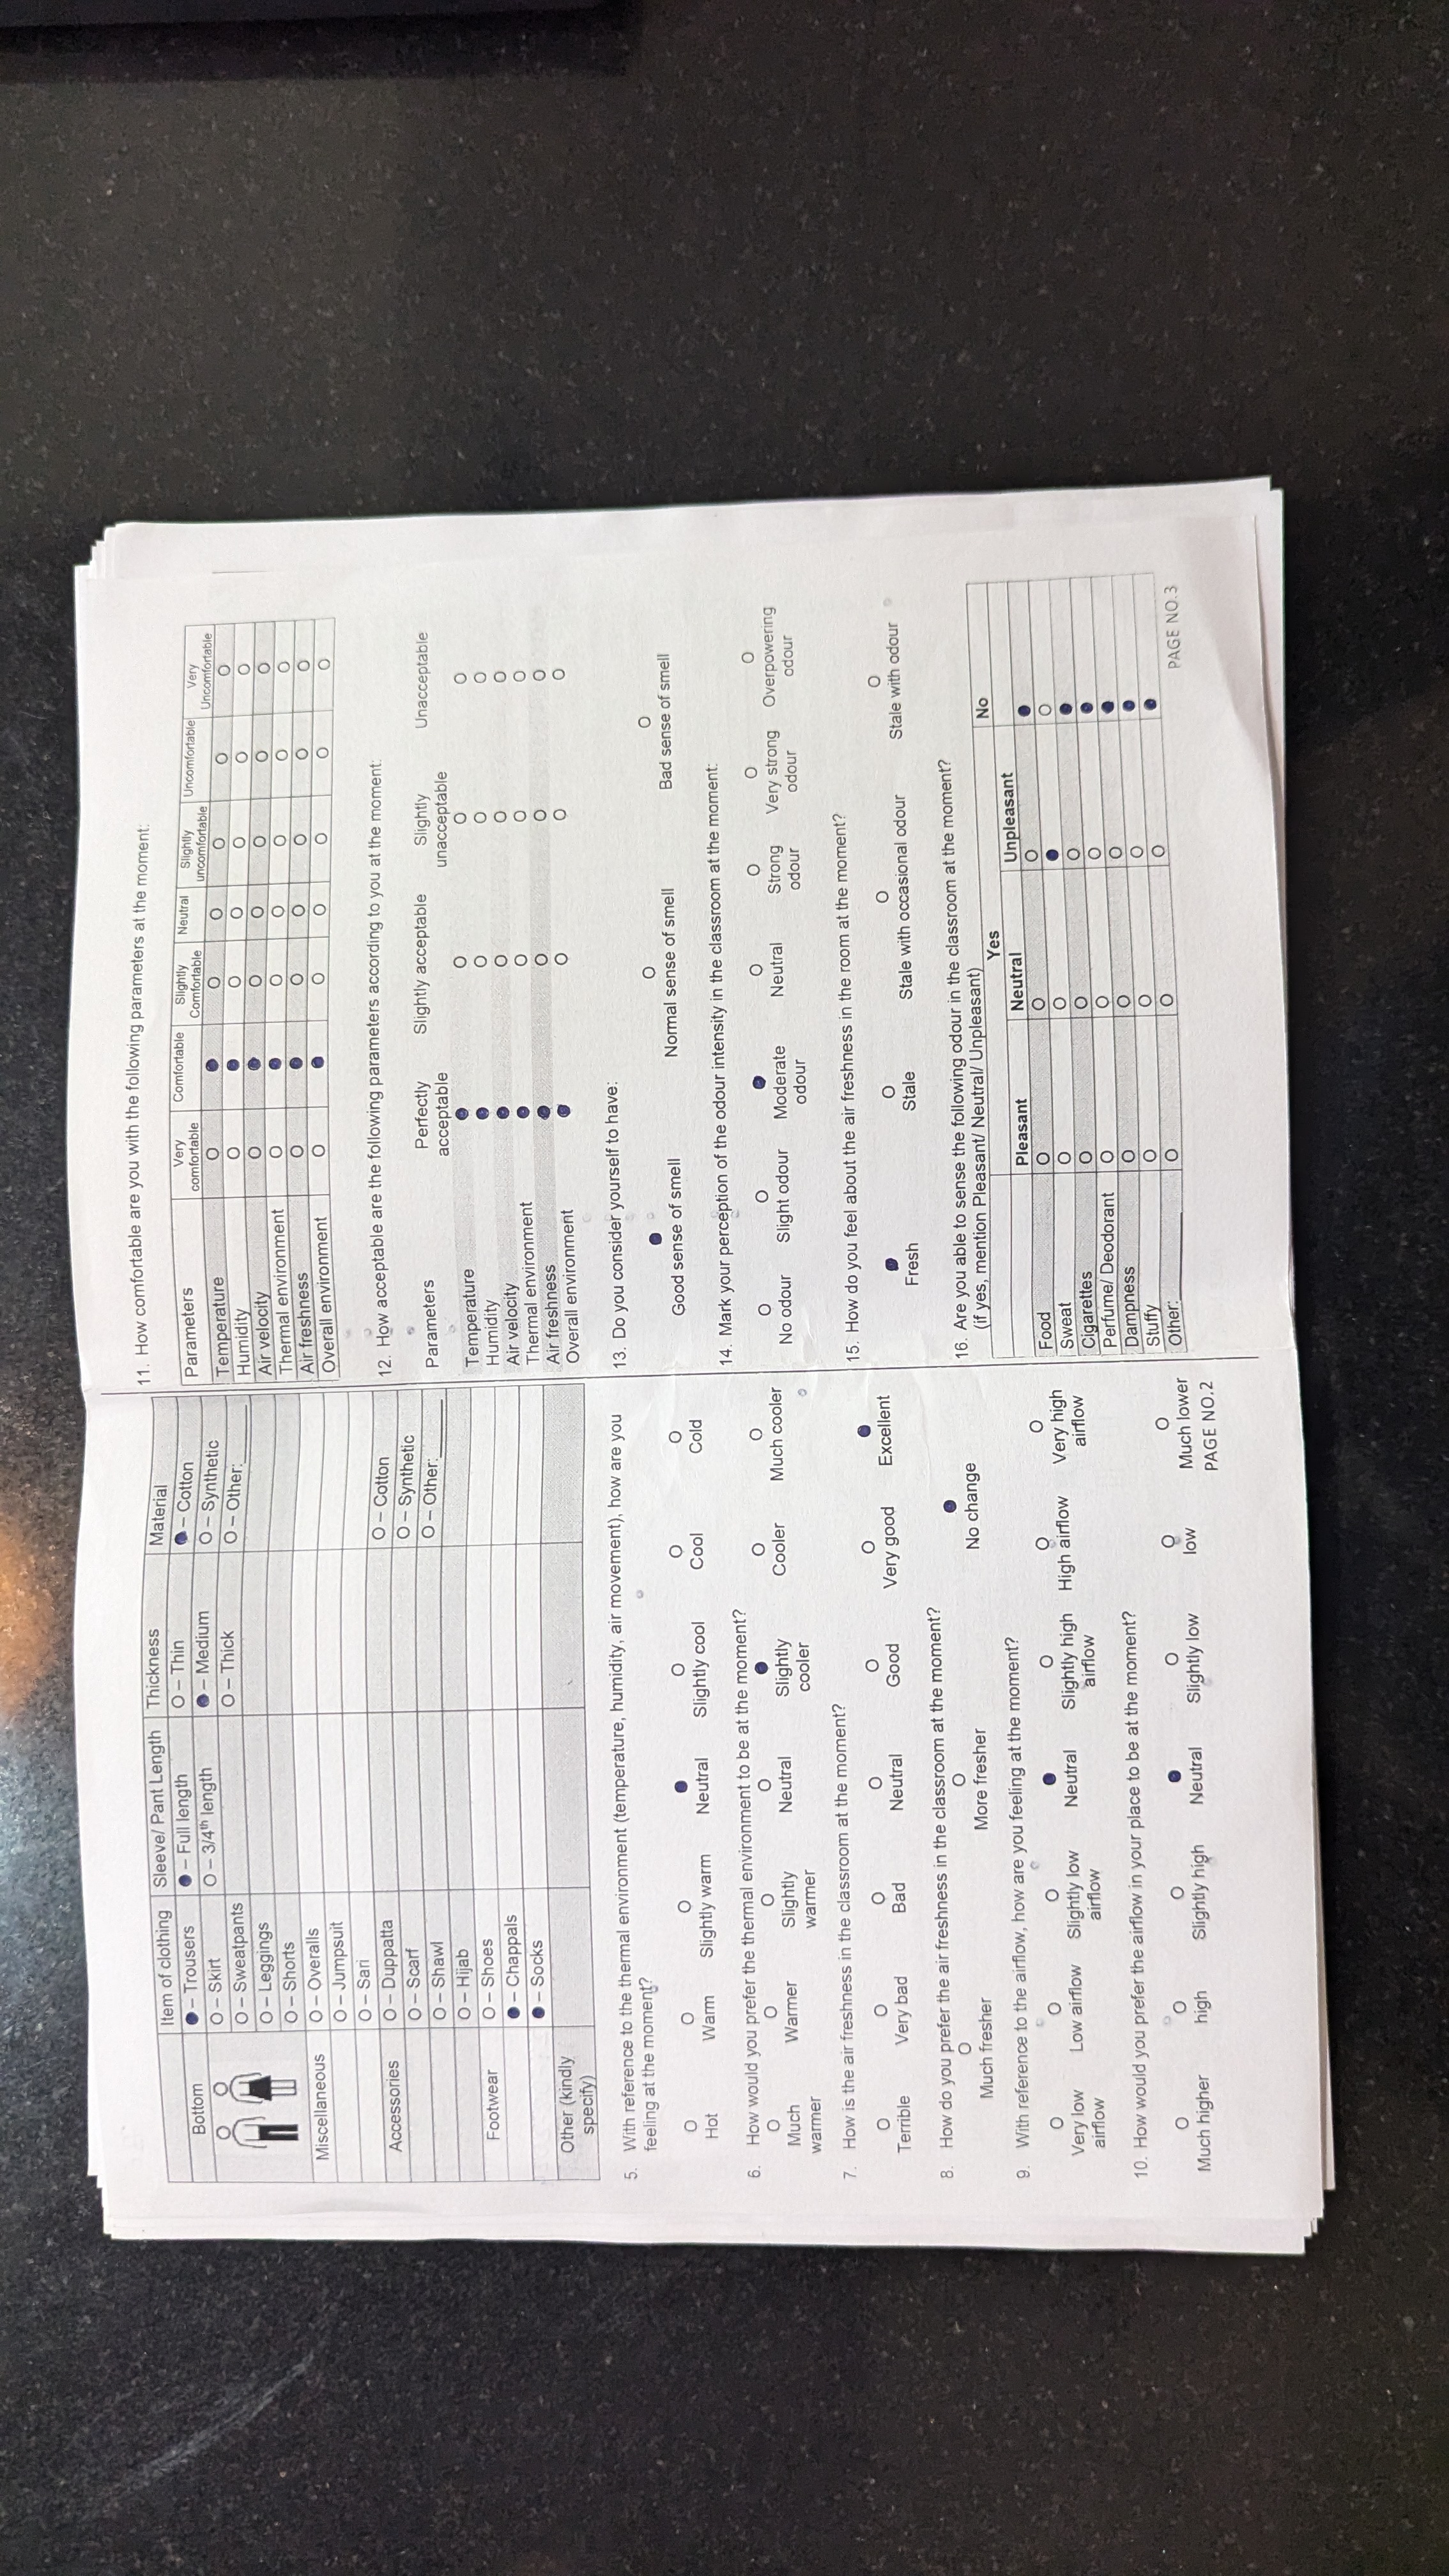 Item of clothing Sleeve/ Pant Length Thickness Material
Bottom ● – Trousers ● – Full length O – Thin ● – Cotton
O – Skirt O – 3/4th length ● – Medium O – Synthetic
O – Sweatpants O – Thick O – Other:______
O – Leggings
O – Shorts
Miscellaneous O – Overalls
O – Jumpsuit
O – Sari
Accessories O – Duppatta O – Cotton
O – Scarf O – Synthetic
O – Shawl O – Other:______
O – Hijab
Footwear O – Shoes
● – Chappals
● – Socks
Other (kindly
specify)
5. With reference to the thermal environment (temperature, humidity, air movement), how are you
feeling at the moment?
O O O ● O O O
Hot Warm Slightly warm Neutral Slightly cool Cool Cold
6. How would you prefer the thermal environment to be at the moment?
O O O O ● O O
Much Warmer Slightly Neutral Slightly Cooler Much cooler
warmer warmer cooler
7. How is the air freshness in the classroom at the moment?
O O O O O O ●
Terrible Very bad Bad Neutral Good Very good Excellent
8. How do you prefer the air freshness in the classroom at the moment?
O O ●
Much fresher More fresher No change
9. With reference to the airflow, how are you feeling at the moment?
O O O ● O O O
Very low Low airflow Slightly low Neutral Slightly high High airflow Very high
airflow airflow airflow airflow
10. How would you prefer the airflow in your place to be at the moment?
O O O ● O O O
Much higher high Slightly high Neutral Slightly low low Much lower
PAGE NO.2
11. How comfortable are you with the following parameters at the moment:
Parameters Very Comfortable Slightly Neutral Slightly Uncomfortable Very
comfortable Comfortable uncomfortable Uncomfortable
Temperature O ● O O O O O
Humidity O ● O O O O O
Air velocity O ● O O O O O
Thermal environment O ● O O O O O
Air freshness O ● O O O O O
Overall environment O ● O O O O O
12. How acceptable are the following parameters according to you at the moment:
Parameters Perfectly Slightly acceptable Slightly Unacceptable
acceptable unacceptable
Temperature ● O O O
Humidity ● O O O
Air velocity ● O O O
Thermal environment ● O O O
Air freshness ● O O O
Overall environment ● O O O
13. Do you consider yourself to have:
● O O
Good sense of smell Normal sense of smell Bad sense of smell
14. Mark your perception of the odour intensity in the classroom at the moment:
O O ● O O O O
No odour Slight odour Moderate Neutral Strong Very strong Overpowering
odour odour odour odour
15. How do you feel about the air freshness in the room at the moment?
● O O O
Fresh Stale Stale with occasional odour Stale with odour
16. Are you able to sense the following odour in the classroom at the moment?
(if yes, mention Pleasant/ Neutral/ Unpleasant)
Yes No
Pleasant Neutral Unpleasant
Food O O O ●
Sweat O O ● O
Cigarettes O O O ●
Perfume/ Deodorant O O O ●
Dampness O O O ●
Stuffy O O O ●
Other:______ O O O ●
PAGE NO.3